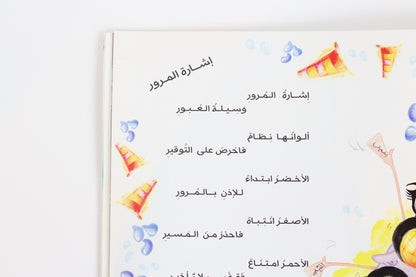 إشارة المرور
إشارةُ المُرور
وَسيلةُ العُبور
ألوانُها نظامٌ
فاحرص على التَّوقير
الأخضرُ ابتداءٌ
للإذنِ بالمُرور
الأصفرُ انتباهٌ
فاحذرْ من المَسير
الأحمرُ امتناعٌ